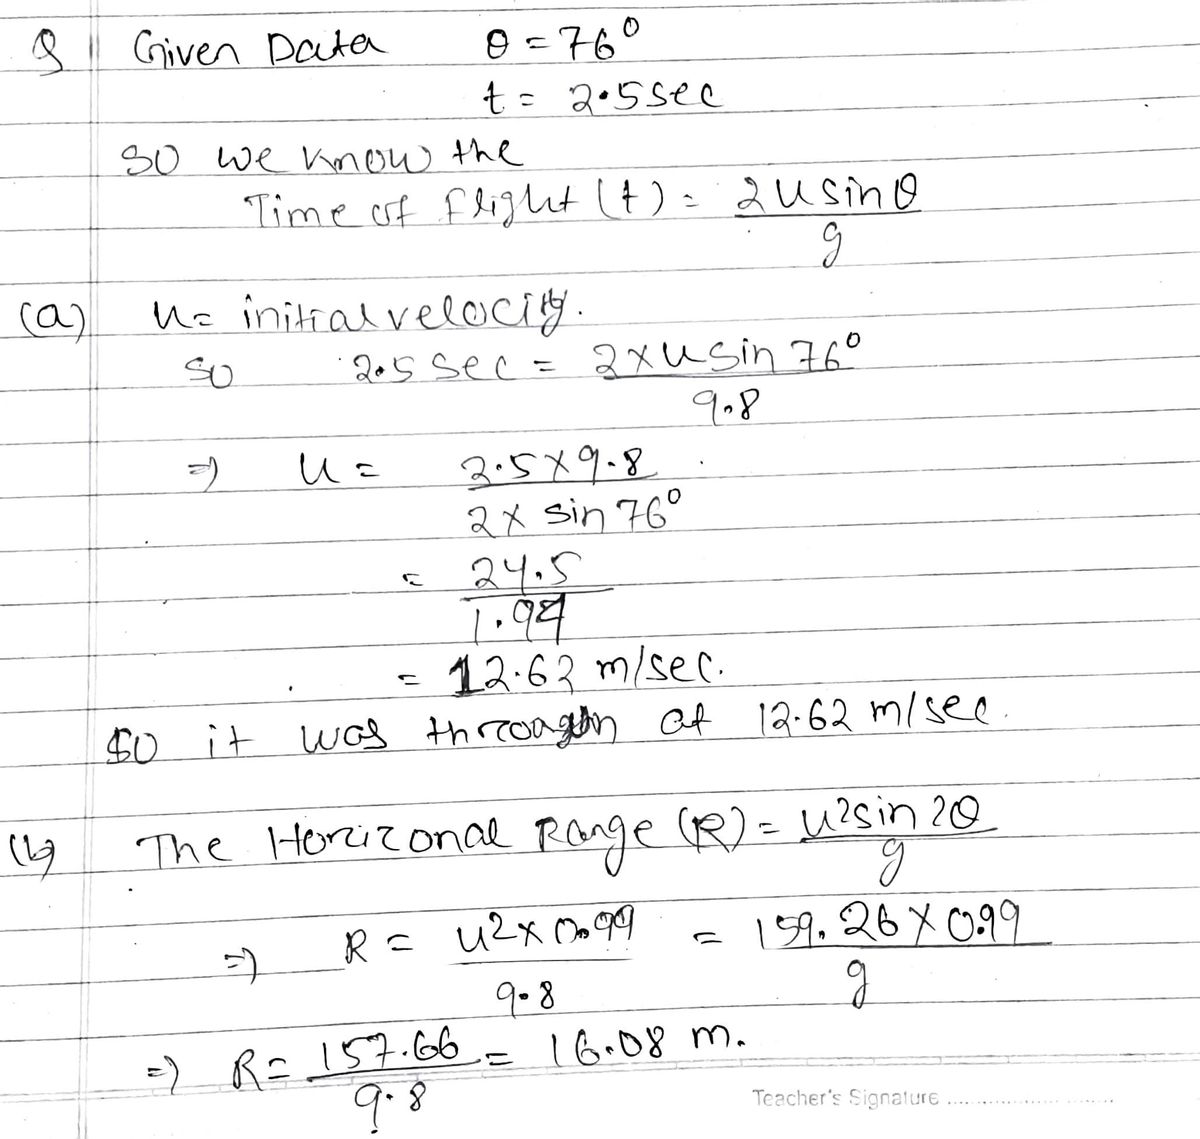 Q Given Data θ = 76°
t = 2.5 sec
so we know the
Time of flight (t) = 2 u sin θ / g
(a) u = initial velocity.
so 2.5 sec = 2 × u sin 76° / 9.8
⇒ u = 2.5 × 9.8 / 2 × sin 76°
= 24.5 / 1.94
= 12.62 m/sec.
so it was at 12.62 m/sec.
(b) The Horizonal Range (R) = u² sin 2θ / g
⇒ R = u² × 0.99 / 9.8 = 159.26 × 0.99 / g
⇒ R = 157.66 / 9.8 = 16.08 m.
Teacher's Signature ........................